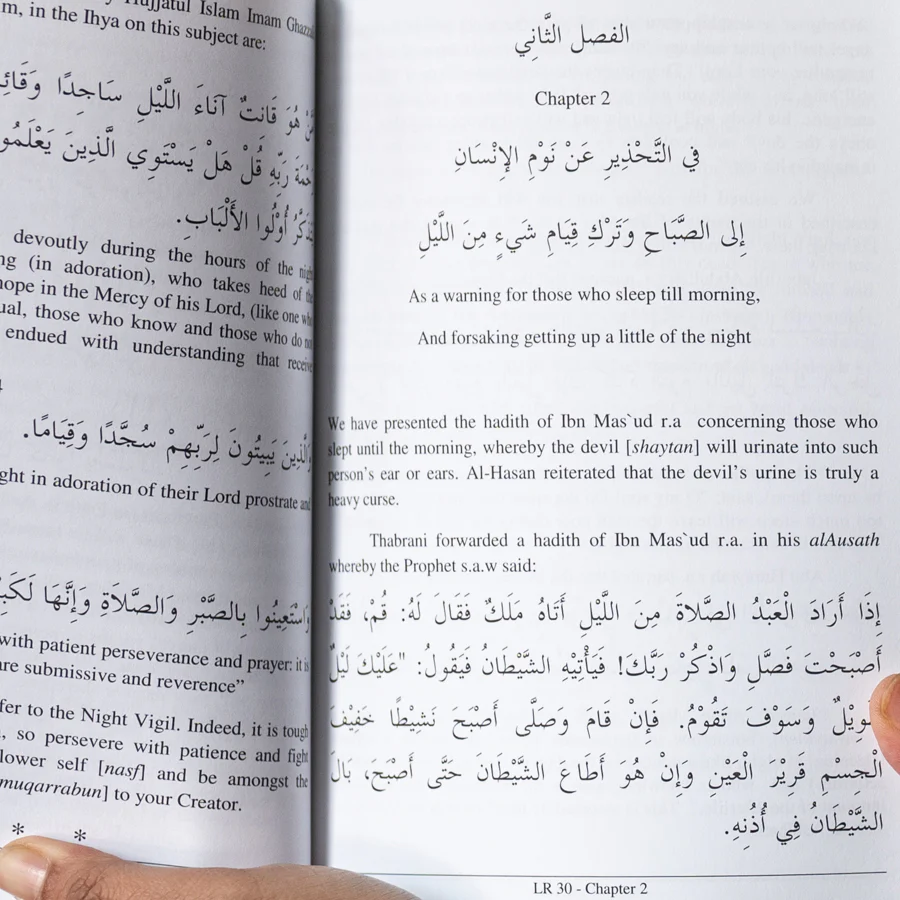 Hujjatul Islam Imam
m, in the Ihya on this subject are:
هُوَ قَانِتٌ آنَاءَ اللَّيْلِ سَاجِدًا
رَبِّهِ قُلْ هَلْ يَسْتَوِي الَّذِينَ
أُوْلُوا الأَلْبَابِ.
devoutly during the hours of the
ng (in adoration), who takes heed of
hope in the Mercy of his Lord, (like one
ual, those who know and those who do not
endued with understanding that receive
وَالَّذِينَ يَبِيتُونَ لِرَبِّهِمْ سُجَّدًا وَقِيَامًا.
ght in adoration of their Lord prostrate and
وَاسْتَعِينُوا بِالصَّبْرِ وَالصَّلَاةِ وَإِنَّهَا
with patient perseverance and prayer: it is
are submissive and reverence”
fer to the Night Vigil. Indeed, it is tough
, so persevere with patience and fight
lower self [nasf] and be amongst the
muqarrabun] to your Creator.
* *
الفصل الثَّانِي
Chapter 2
فِي التَّحْذِيرِ عَنْ نَوْمِ الإِنْسَانِ
إِلى الصَّبَاحِ وَتَرْكِ قِيَامِ شَيءٍ مِنَ اللَّيْلِ
As a warning for those who sleep till morning,
And forsaking getting up a little of the night
We have presented the hadith of Ibn Mas`ud r.a concerning those who
slept until the morning, whereby the devil [shaytan] will urinate into such
person’s ear or ears. Al-Hasan reiterated that the devil’s urine is truly a
heavy curse.
Thabrani forwarded a hadith of Ibn Mas`ud r.a. in his alAusath
whereby the Prophet s.a.w said:
إِذَا أَرَادَ الْعَبْدُ الصَّلاةَ مِنَ اللَّيْلِ أَتَاهُ مَلَكٌ فَقَالَ لَهُ: قُمْ، فَقَدْ
أَصْبَحْتَ فَصَّلِ وَاذْكُرْ رَبَّكَ! فَيَأْتِيْهِ الشَّيْطَانُ فَيَقُولُ: "عَلَيْكَ لَيْلٌ
طَوِيْلٌ وَسَوْفَ تَقُوْمُ. فَإِنْ قَامَ وَصَلَّى أَصْبَحَ نَشِيْطًا خَفِيْفَ
الْجِسْمِ قَرِيْرَ الْعَيْنِ وَإِنْ هُوَ أَطَاعَ الشَّيْطَانَ حَتَّى أَصْبَحَ، بَالَ
الشَّيْطَانُ فِي أُذُنِهِ.
LR 30 - Chapter 2